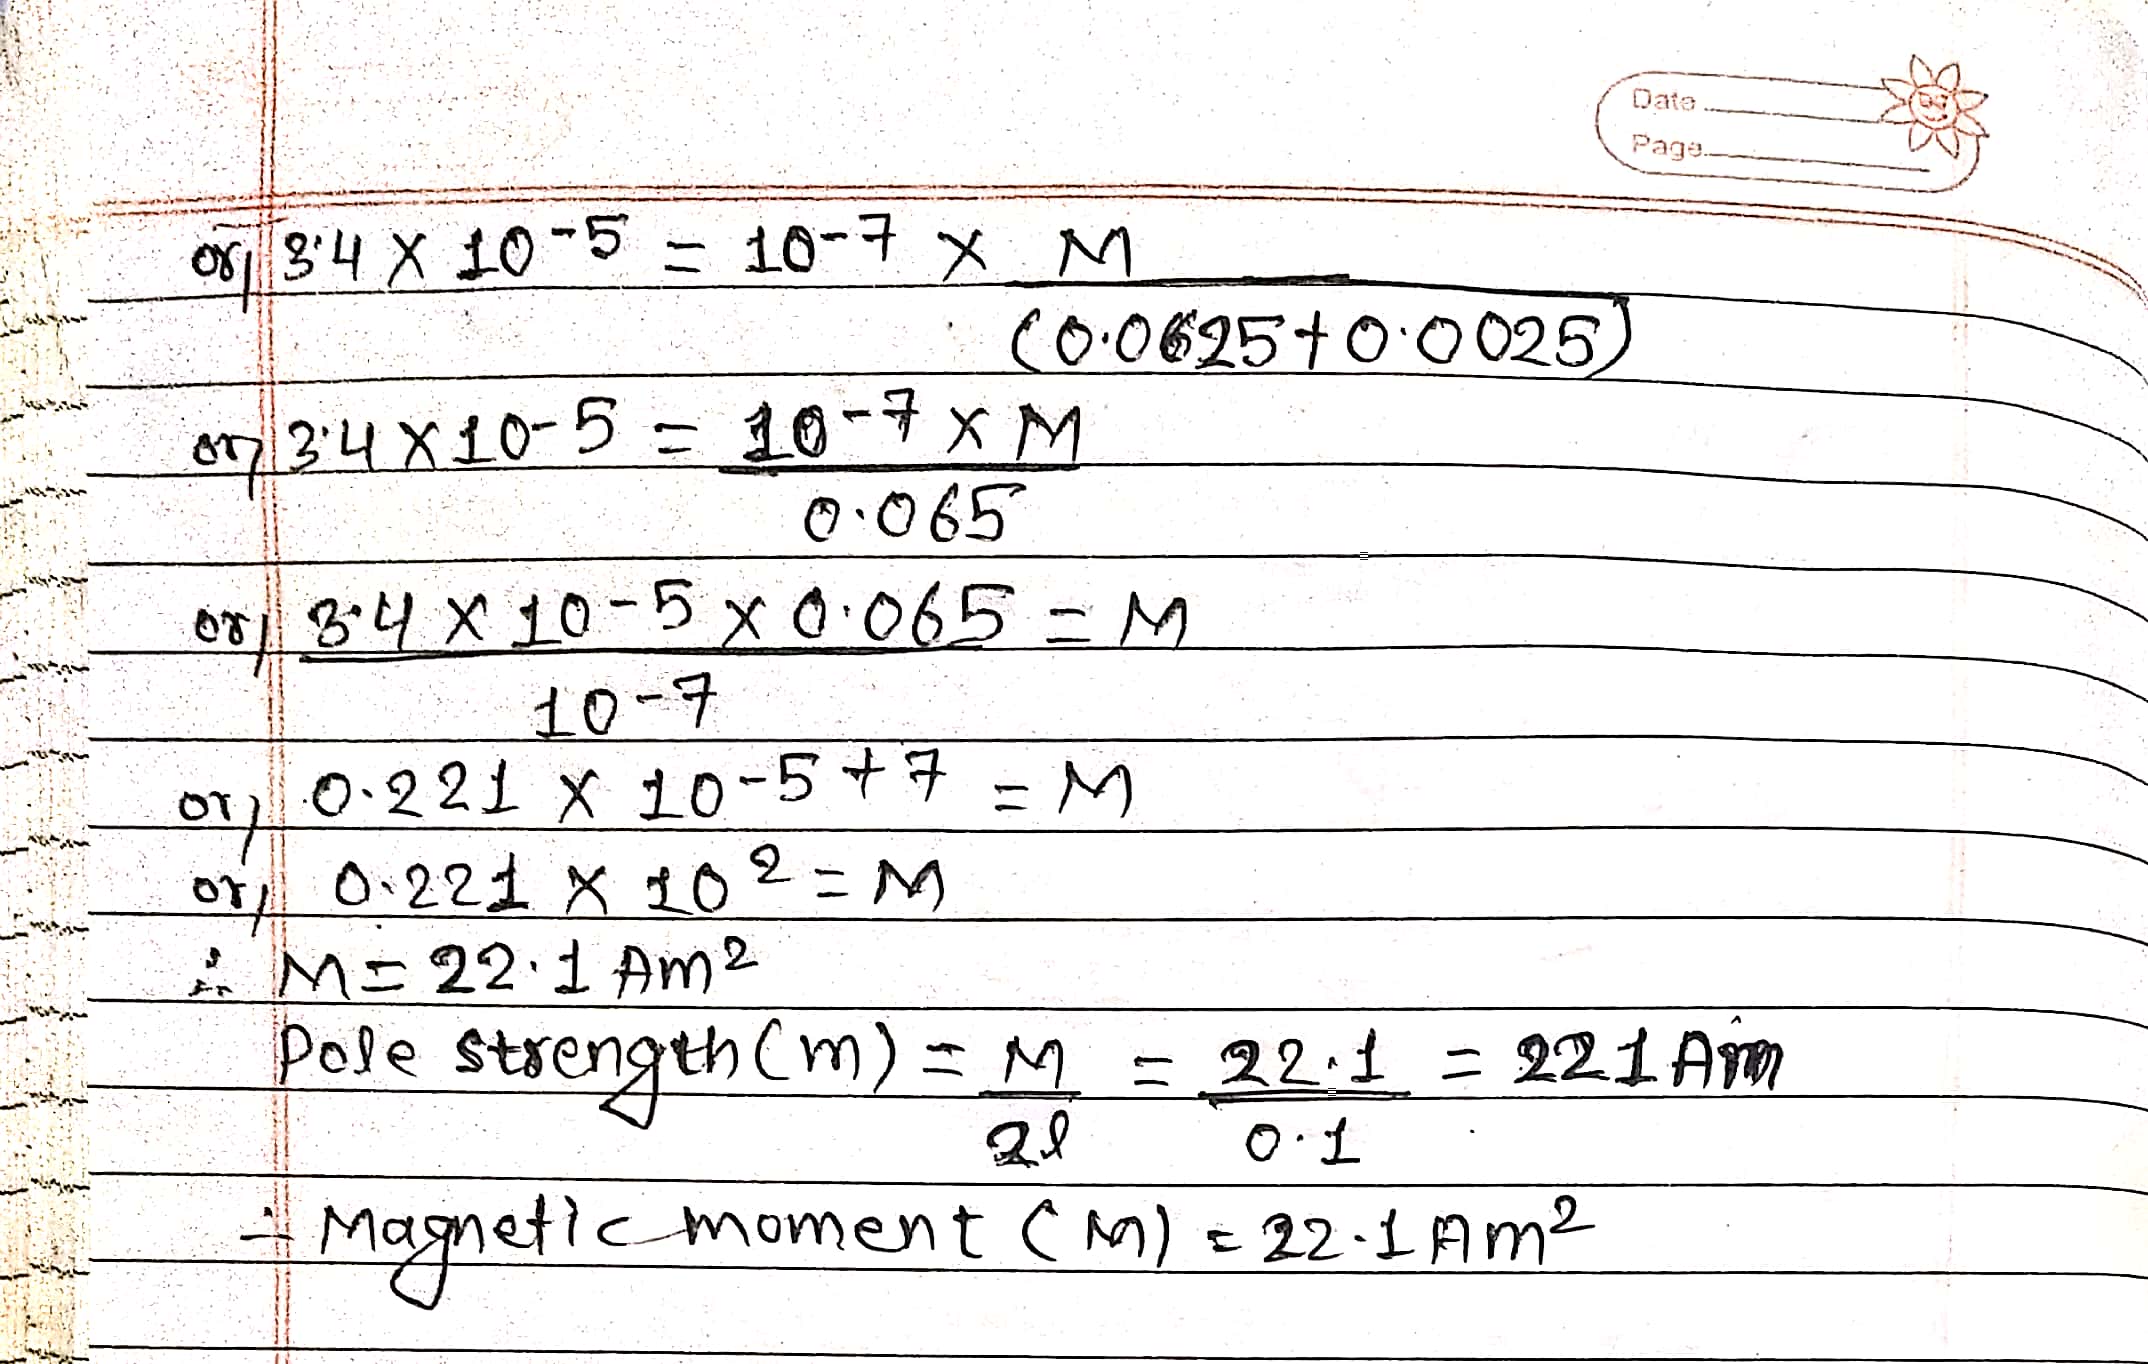 Date
Page
or, 3.4 X 10-5 = 10-7 x M
(0.0625+0.0025)
or, 3.4 X 10-5 = 10-7 x M
0.065
or, 3.4 X 10-5 x 0.065 = M
10-7
or, 0.221 X 10-5+7 = M
or, 0.221 X 10² = M
∴ M = 22.1 Am²
Pole strength (m) = M = 22.1 = 221 Am
2l 0.1
∴ Magnetic moment (M) = 22.1 Am²